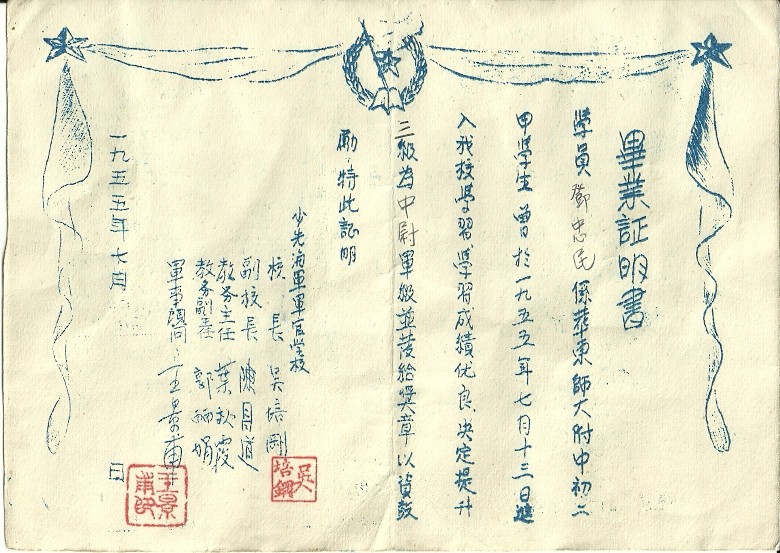 畢業証明書
學員鄧忠民係華東師大附中初二
甲學生曾於一九五五年七月十三日進
入我校學習學習成績优良決定提升
三級為中尉軍級並發給獎章以資鼓
勵·特此証明
少先海軍軍官学校
校長 吳培剛
副校長 陳昌道
教务主任 葉秋霞
教务副主任 郭娟
軍事顧问 王景甫
一九五五年七月 日
吳培鋼
王景甫印